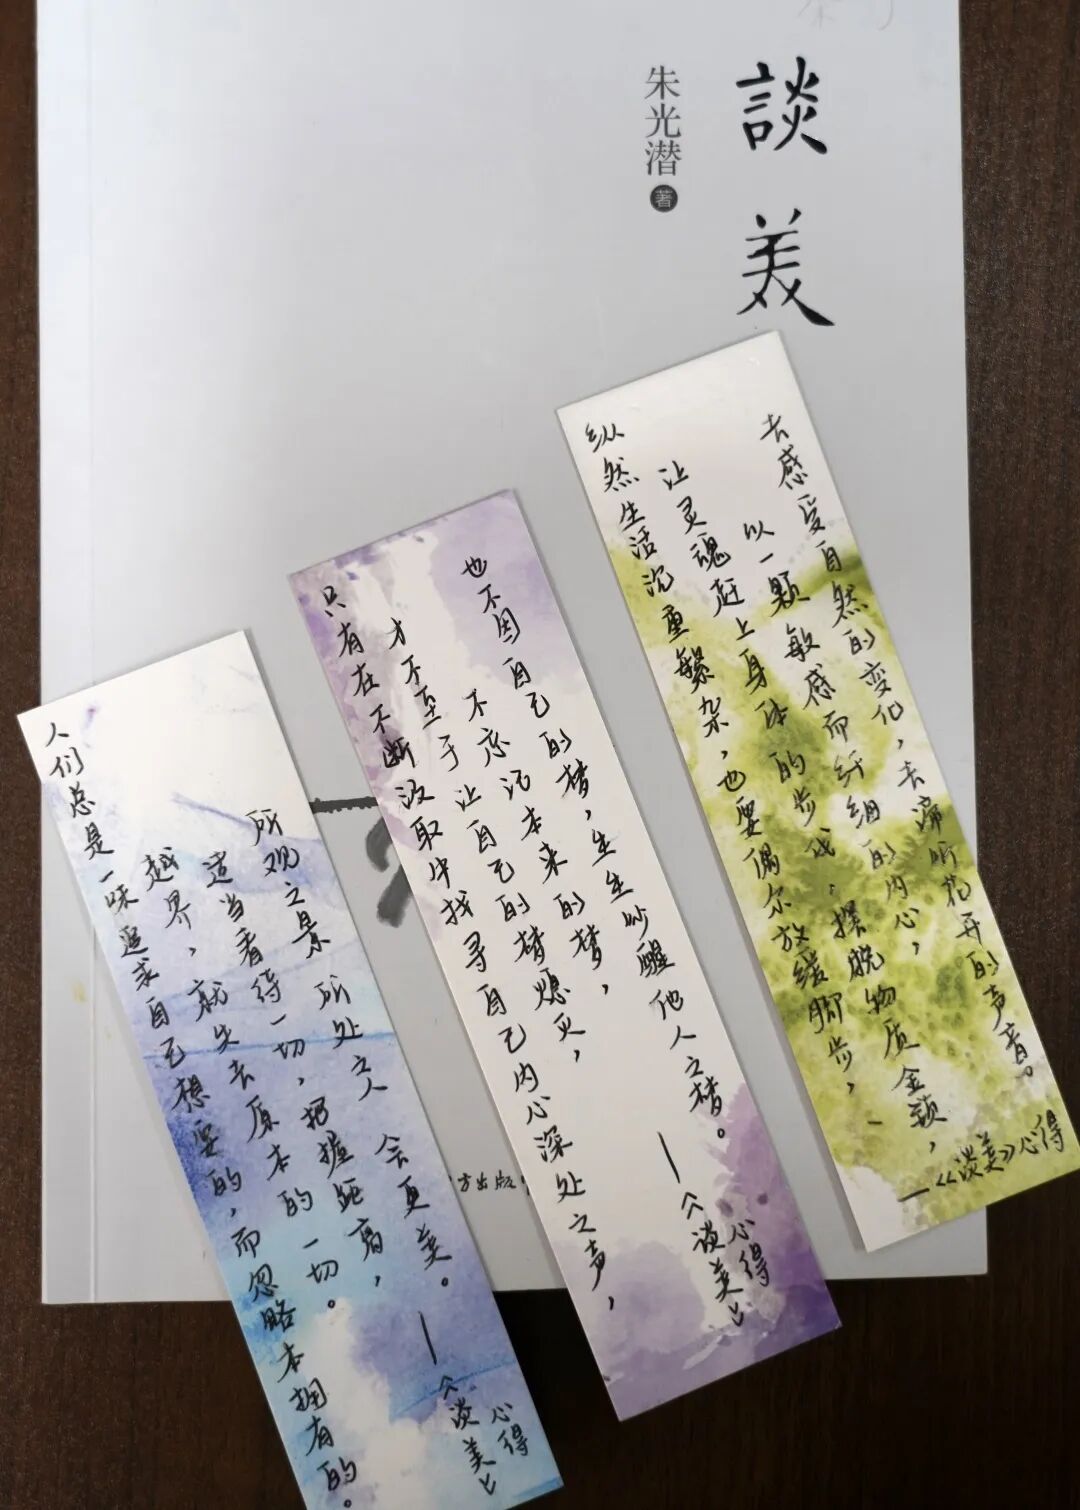 談美
朱光潜 著
人们总是一味追求自己想要的,而忽略本拥有的。
越界,就失去原本的一切。
适当看待一切,把握距离,
所观之景 所处之人 会更美。
——《谈美》
心得
只有在不断汲取中找寻自己内心深处之声,
才不至于让自己的梦熄灭,
不忘记本来的梦,
也不因自己的梦,生生吵醒他人之梦。
——《谈美》
心得
纵然生活沉重繁杂,也要偶尔放缓脚步,
让灵魂赶上身体的步伐,摆脱物质金锁,
以一颗敏感而纤细的内心,
去感受自然的变化,去谛听花开的声音。
——《谈美》心得
方出版